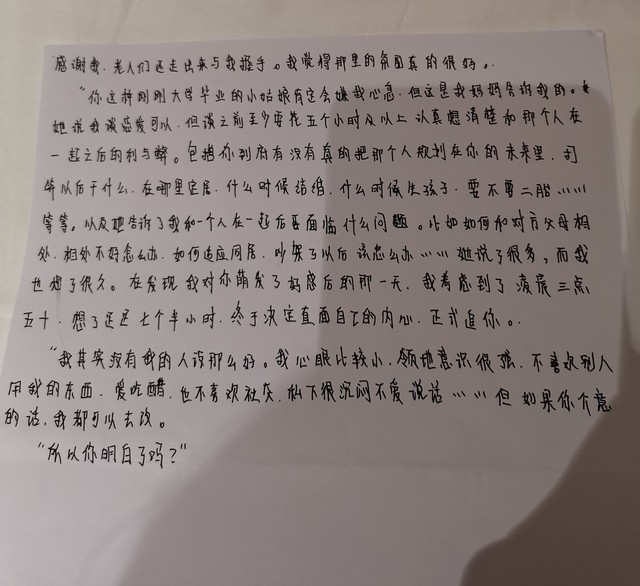 感谢我.老人们还走出来与我握手。我觉得那里的氛围真的很好。.
“你这种刚刚大学毕业的小姑娘肯定会嫌我心急.但这是我妈妈告诉我的。
她说我谈恋爱可以.但谈之前至少要花五个小时及以上认真想清楚和那个人在
一起之后的利与弊。包括你到底有没有真的把那个人规划在你的未来里.打
算以后干什么.在哪里定居.什么时候结婚.什么时候生孩子.要不要二胎……
等等。以及她告诉了我和一个人在一起后要面临什么问题。比如如何和对方父母相
处.相处不好怎么办.如何适应同居.吵架了以后该怎么办……她说了很多，而我
也想了很久。在发现我对你萌发了好感后的那一天.我考虑到了凌晨三点
五十.想了足足七个半小时.终于决定直面自己的内心.正式追你。.
“我其实没有我的人设那么好。我心眼比较小.领地意识很强.不喜欢别人
用我的东西.爱吃醋.也不喜欢社交.私下很沉闷不爱说话……但如果你介意
的话.我都可以去改。
“所以你明白了吗？”